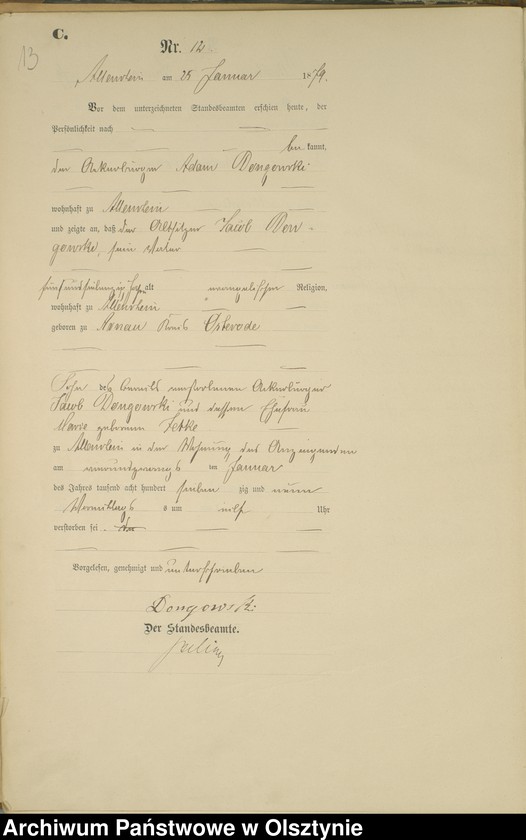 C.
13
Nr. 12
Allenstein am 25 Januar 1879.
Vor dem unterzeichneten Standesbeamten erschien heute, der
Persönlichkeit nach
be kannt,
der Ackerbürger Adam Dongowski
wohnhaft zu Allenstein
und zeigte an, daß der Altsitzer Jacob Don-
gowski, sein Vater
fünfundsiebenzig Jahr alt evangelischer Religion,
wohnhaft zu Allenstein
geboren zu Kreis Osterode
Sohn des bereits verstorbenen Ackerbürger
Jacob Dongowski und dessen Ehefrau
Marie geborenen
zu Allenstein in der Wohnung des Anzeigenden
am vierundzwanzigs ten Januar
des Jahres tausend acht hundert sieben zig und neun
Vormittags um elf Uhr
verstorben sei.
Vorgelesen, genehmigt und unterschrieben
Dongowski
Der Standesbeamte.
Archiwum Państwowe w Olsztynie